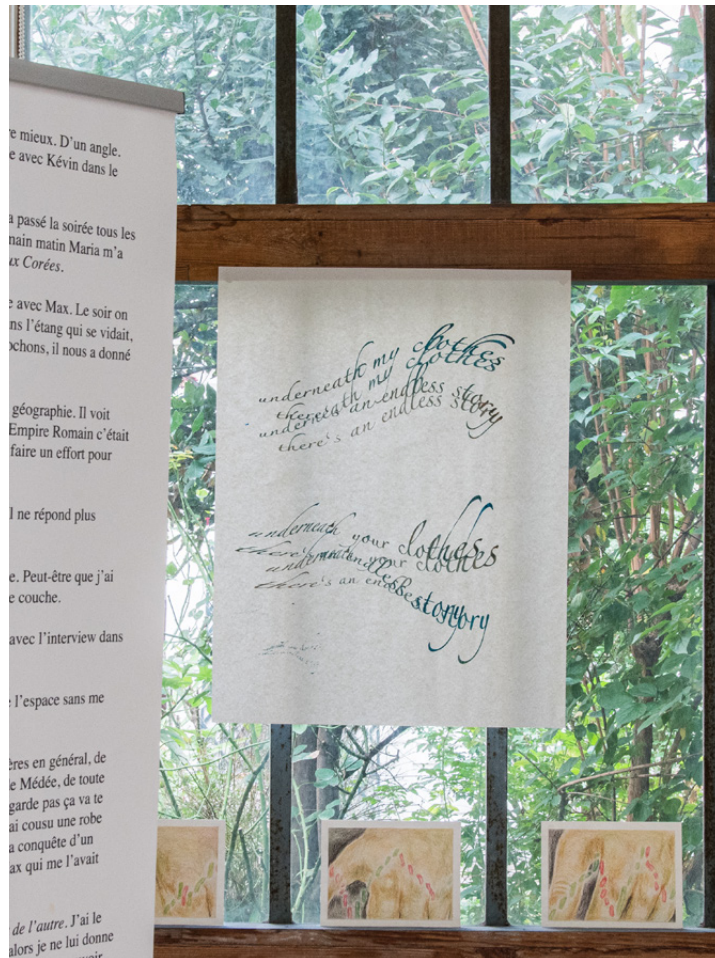 re mieux. D'un angle.
e avec Kévin dans le
a passé la soirée tous les
main matin Maria m'a
ux Corées.
e avec Max. Le soir on
ns l'étang qui se vidait,
ochons, il nous a donné
géographie. Il voit
Empire Romain c'était
faire un effort pour
l ne répond plus
e. Peut-être que j'ai
e couche.
avec l'interview dans
l'espace sans me
ères en général, de
e Médée, de toute
garde pas ça va te
ai cousu une robe
a conquête d'un
ax qui me l'avait
de l'autre. J'ai le
alors je ne lui donne
underneath my clothes
there's an endless story
underneath my clothes
there's an endless story
underneath your clothes
there's an endless story
underneath your clothes
there's an endless story